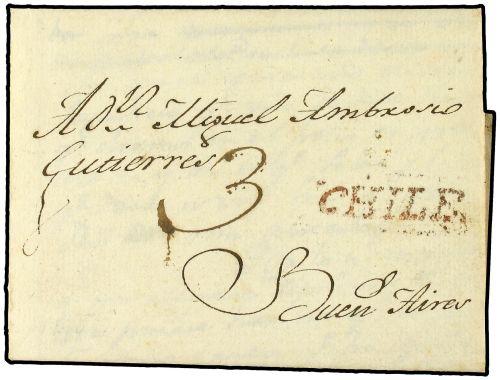 A Dn Miguel Ambrosio
Gutierres
3
CHILE
Buens Aires